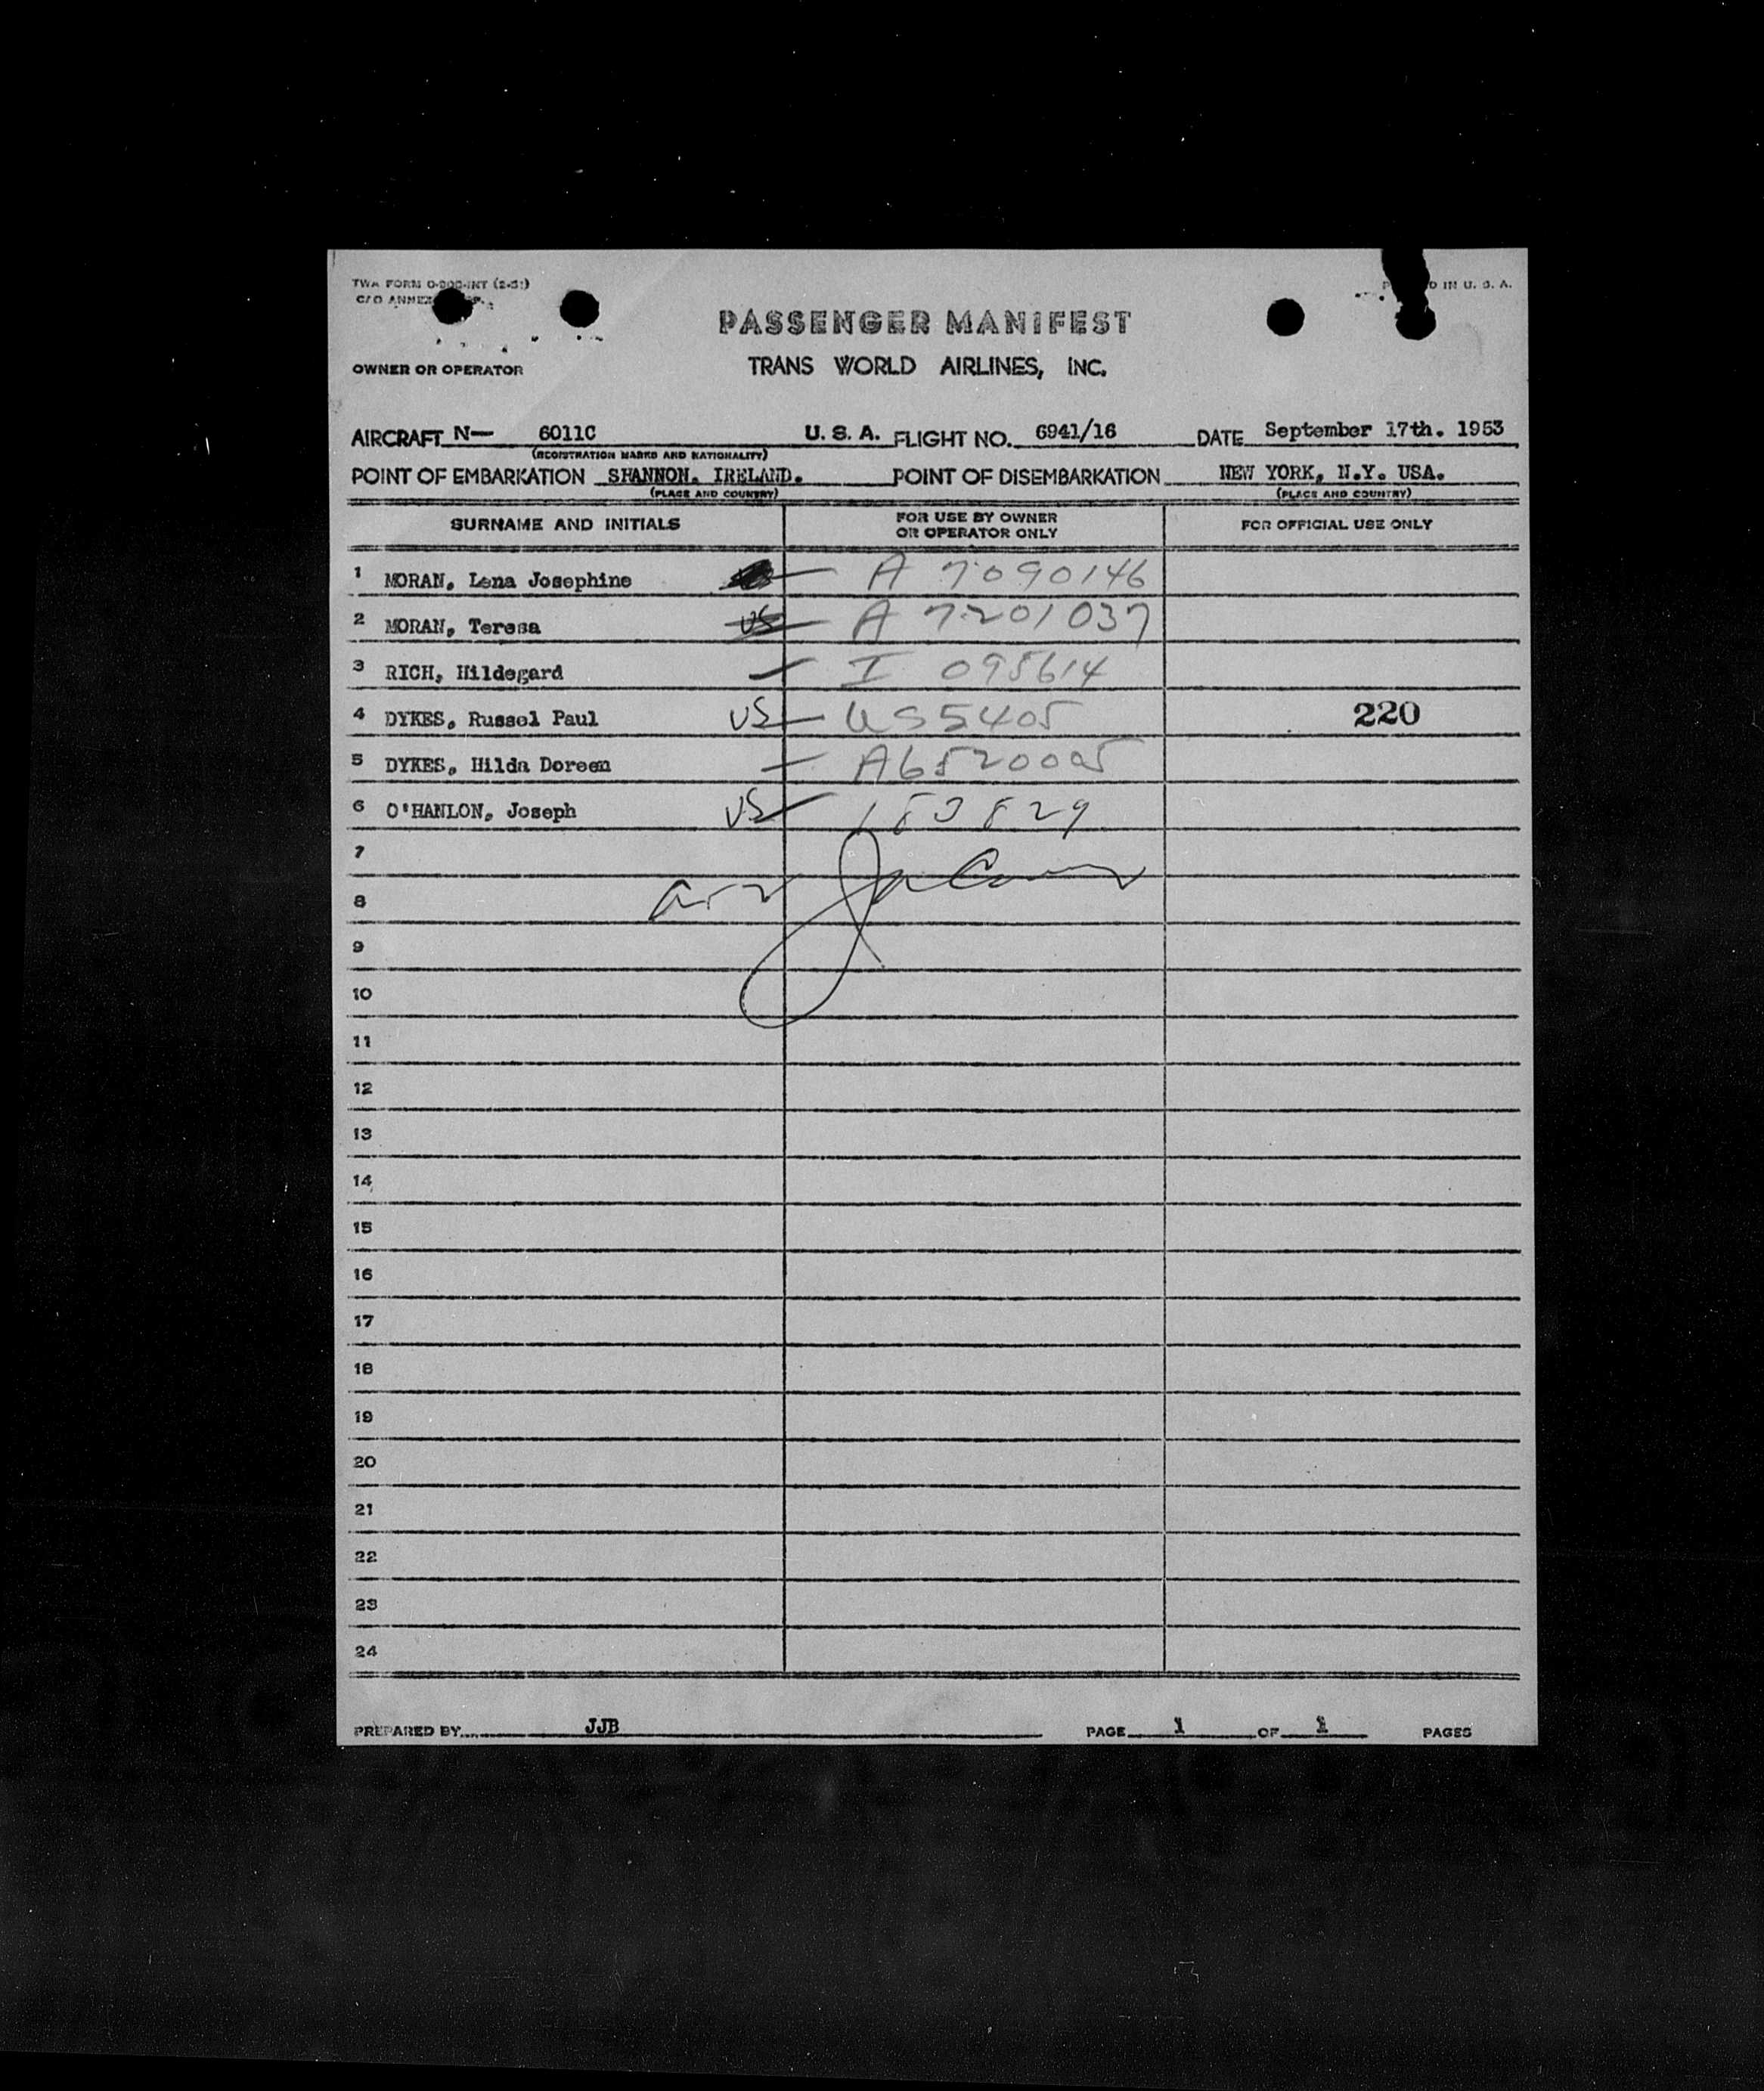 TWA FORM
C/O
IN U. S. A.
PASSENGER MANIFEST
OWNER OR OPERATOR TRANS WORLD AIRLINES, INC.
AIRCRAFT N— 6011C U. S. A. FLIGHT NO. 6941/16 DATE September 17th. 1953
(REGISTRATION MARKS AND NATIONALITY)
POINT OF EMBARKATION SHANNON. IRELAND. POINT OF DISEMBARKATION NEW YORK, N.Y. USA.
(PLACE AND COUNTRY) (PLACE AND COUNTRY)
SURNAME AND INITIALS FOR USE BY OWNER OR OPERATOR ONLY FOR OFFICIAL USE ONLY
1 MORAN, Lena Josephine A 7090146
2 MORAN, Teresa US A 7201037
3 RICH, Hildegard I 095614
4 DYKES, Russel Paul US US5405 220
5 DYKES, Hilda Doreen A6520005
6 O'HANLON, Joseph US 183829
7
8
9
10
11
12
13
14
15
16
17
18
19
20
21
22
23
24
PREPARED BY JJB PAGE 1 OF 1 PAGES